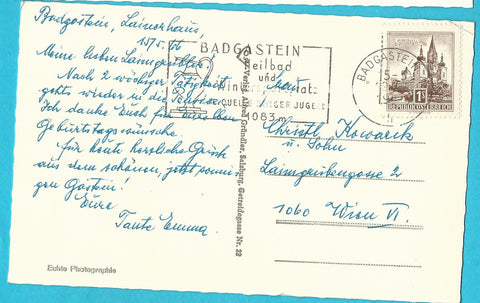 Badgastein, Lainerhaus,
15/5. 66
Meine lieben
Nach 2 wöchiger Tätigkeit
geht's wieder in die
Ich danke Euch für die lieben
Geburtstagswünsche.
Für heute herzliche Grüße
aus dem schönen, jetzt sonni-
gen Gastein!
Eure
Tante Emma
Echte Photographie
Salzburg, Getreidegasse Nr. 22
BADGASTEIN
Heilbad
und
Wintersportplatz
QUELLE EWIGER JUGEND
1083 m
BADGASTEIN
1S
REPUBLIK ÖSTERREICH
Frau
Christl Kowarik
u. Sohn
Laimgrubengasse 2
1060 Wien VI.